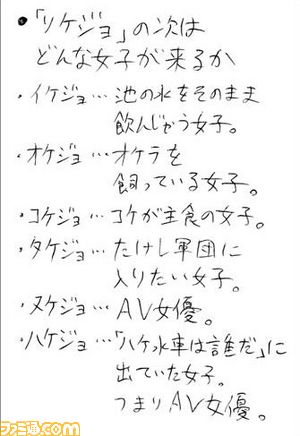 ●「リケジョ」の次は
どんな女子が来るか
・イケジョ…池の水をそのまま
飲んじゃう女子。
・オケジョ…オケラを
飼っている女子。
・コケジョ…コケが主食の女子。
・タケジョ…たけし軍団に
入りたい女子。
・ヌケジョ…AV女優。
・ハケジョ…「ハケ水車は誰だ」に
出ていた女子。
つまりAV女優。
ファミ通.com